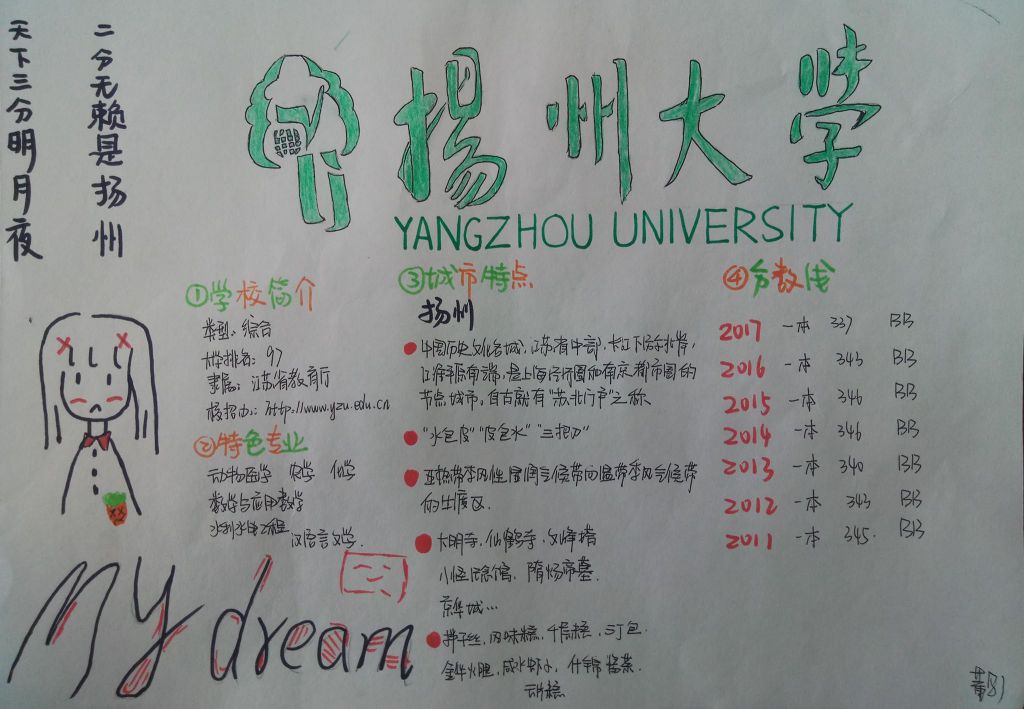 天下三分明月夜
二分无赖是扬州
揚州大学
YANGZHOU UNIVERSITY
①学校简介
类型：综合
大学排名：97
隶属：江苏省教育厅
校招办：http://www.yzu.edu.cn
②特色专业
动物医学 农学 化学
数学与应用数学
水利水电工程
汉语言文学
③城市特点
扬州
中国历史文化名城，江苏省中部，长江下游北岸，
江淮平原南端，是上海经济圈和南京都市圈的
节点城市，自古就有"苏北门户"之称
"水包皮" "皮包水" "三把刀"
亚热带季风性湿润气候带向温带季风气候带
的过渡区
大明寺，仙鹤寺，文峰塔
纪念馆，隋炀帝墓
京华城…
烫干丝，千层糕，三丁包
金华火腿，咸水虾，什锦酱菜
④分数线
2017 一本 337 BB
2016 一本 343 BB
2015 一本 346 BB
2014 一本 346 BB
2013 一本 340 BB
2012 一本 343 BB
2011 一本 345 BB
My dream